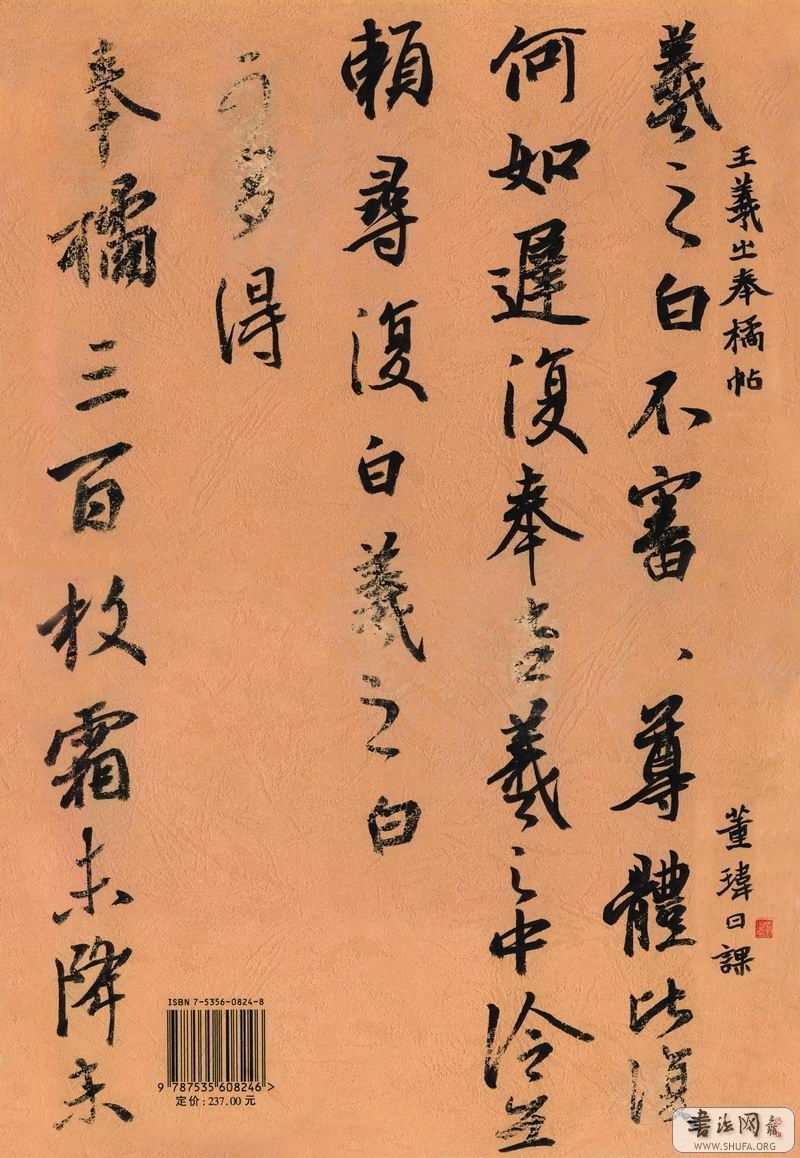 王羲之奉橘帖
董瑋日課
羲之白不審、尊體比復
何如遲復奉告羲之中冷無
賴尋復白羲之白
奉橘三百枚霜未降未
可多得
ISBN 7-5356-0824-8
9 787535 608246 >
定价: 237.00 元
書法网
WWW.SHUFA.ORG